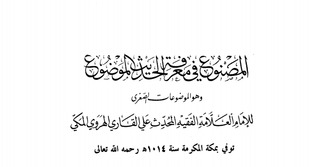 المصنوع في معرفة الحديث الموضوع
وهو الموضوعات الصغرى
للإمام العلامة الفقيه المحدث علي القاري الهروي المكي
توفي بمكة المكرمة سنة ١٠١٤هـ رحمه الله تعالى